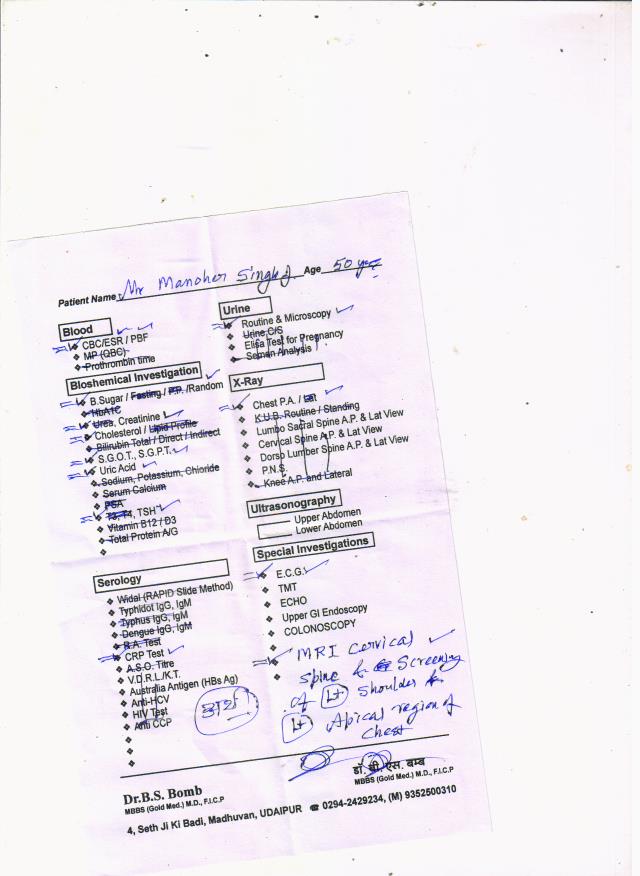 Patient Name Mr Manoher Singh J. Age 50 yrs
Blood
❖ CBC/ESR / PBF
❖ MP (QBC)
❖ Prothrombin time
Bioshemical Investigation
❖ B.Sugar / Fasting / P.P. /Random
❖ HbA1C
❖ Urea, Creatinine
❖ Cholesterol / Lipid Profile
❖ Bilirubin Total / Direct / Indirect
❖ S.G.O.T., S.G.P.T.
❖ Uric Acid
❖ Sodium, Potassium, Chloride
❖ Serum Calcium
❖ PSA
❖ T3, T4, TSH
❖ Vitamin B12 / D3
❖ Total Protein A/G
Serology
❖ Widal (RAPID Slide Method)
❖ Typhidot IgG, IgM
❖ Typhus IgG, IgM
❖ Dengue IgG, IgM
❖ R.A. Test
❖ CRP Test
❖ A.S.O. Titre
❖ V.D.R.L./K.T.
❖ Australia Antigen (HBs Ag)
❖ Anti-HCV
❖ HIV Test
❖ Anti CCP
Urine
❖ Routine & Microscopy
❖ Urine C/S
❖ Elisa Test for Pregnancy
❖ Seman Analysis
X-Ray
❖ Chest P.A. / Lat
❖ K.U.B. Routine / Standing
❖ Lumbo Sacral Spine A.P. & Lat View
❖ Cervical Spine A.P. & Lat View
❖ Dorso Lumber Spine A.P. & Lat View
❖ P.N.S.
❖ Knee A.P. and Lateral
Ultrasonography
Upper Abdomen
Lower Abdomen
Special Investigations
❖ E.C.G.
❖ TMT
❖ ECHO
❖ Upper GI Endoscopy
❖ COLONOSCOPY
MRI Cervical
spine & Screening
of Lt Shoulder &
Lt Apical region of
Chest
Dr.B.S. Bomb
MBBS (Gold Med.) M.D., F.I.C.P
डॉ. बी. एस. बम्ब
MBBS (Gold Med.) M.D., F.I.C.P
4, Seth Ji Ki Badi, Madhuvan, UDAIPUR ☎ 0294-2429234, (M) 9352500310